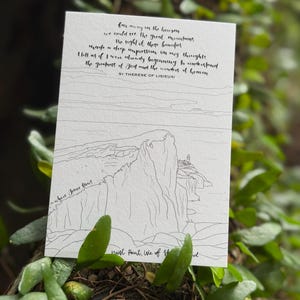 far away on the horizon
we could see the great mountains.
The sight of these beauties
made a deep impression on my thoughts
I felt as if I were already beginning to understand
the greatness of God and the wonders of heaven
ST THERESE OF LISIEUX
West Point, Isle of